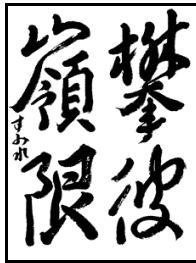 攀彼
嶺限
すみれ